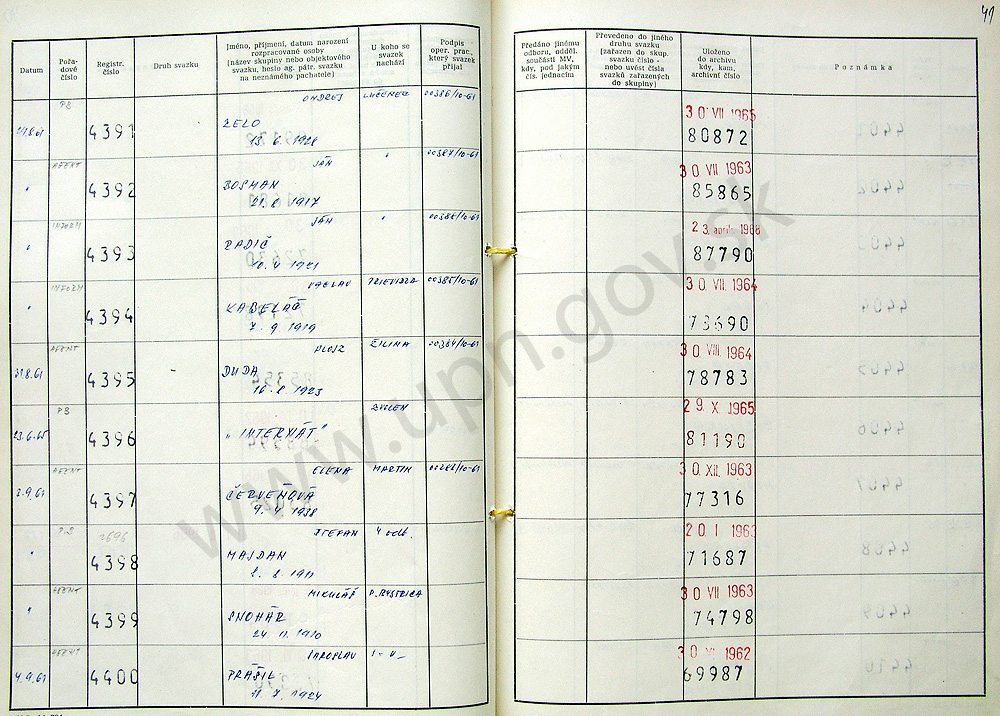 41
Datum
Pořadové číslo
Registr. číslo
Druh svazku
Jméno, příjmení, datum narození
rozpracované osoby
(název skupiny nebo objektového
svazku, heslo ag. pátr. svazku
na neznámého pachatele)
U koho se
svazek
nachází
Podpis
oper. prac.,
který svazek
přijal
Předáno jinému
odboru, odděl.
součásti MV,
kdy, pod jakým
čís. jednacím
Převedeno do jiného
druhu svazku
(zařazen do skup.
svazku číslo -
nebo uvést čísla
svazků zařazených
do skupiny)
Uloženo
do archivu
kdy, kam,
archivní číslo
Poznámka
PS ONDREJ LUČENEC 00386/10-61 30 VII 1965
4391 ZELO 80872
AGENT JÁN " 00387/10-61 30 VII 1963
" 4392 BOSMAN 85865
21. 8 1917
INFORM JÁN "
" 4393 RADIČ 87790
INFORM VACLAV PRIEVIDZA 00385/10-61 30 VII 1964
" 4394 KABELÁČ 73690
7. 9 1919
AGENT ALOJZ ŽILINA 00384/10-61 30 VIII 1964
31.8.61 4395 DUDA 78783
16. 8 1923
PS ZVOLEN 29. X. 1965
4396 "INTERNÁT" 81190
AGENT ELENA MARTIN 30 XII. 1963
2.9.61 4397 ČERVEŇOVÁ 77316
9. 4 1938
PS ŠTEFAN 4 odb. 20 I 1963
" 4398 MAJDAN 71687
AGENT MIKULÁŠ P. BYSTRICA 30 VII 1963
" 4399 SNOHÁR 74798
24 11. 1910
AGENT JAROSLAV 30 XI 1962
4.9.61 4400 PRÁŠIL 69987
11. 7. 1924
www.upn.gov.sk